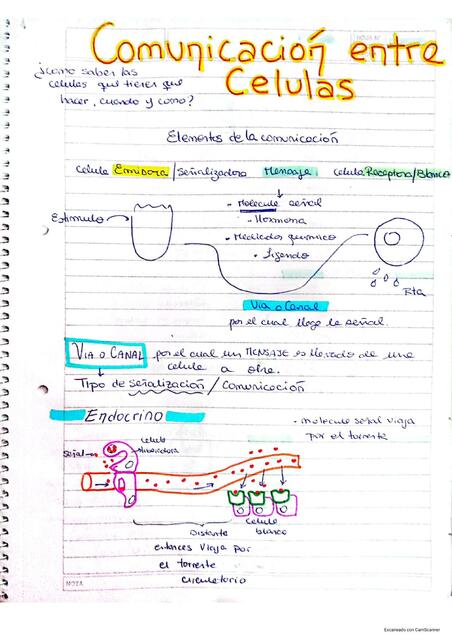 Comunicación entre
Celulas
¿como saben las
celulas que tienen que
hacer, cuando y como?
Elementos de la comunicación
Celula Emisora/Señalizadora Mensaje celula Receptora/Blanco
- Molecula señal
- Hormona
- Mediador quimico
- Ligando
Estimulo
Rta
Via o Canal
por el cual llega la señal.
VIA O CANAL por el cual un MENSAJE es llevado de una
celula a otra.
Tipo de señalización / Comunicación
Endocrino
- molecula señal viaja
por el torrente
señal
celula
Distante
celula
blanco
entonces viaja por
el torrente
circulatorio
NOTA
Escaneado con CamScanner